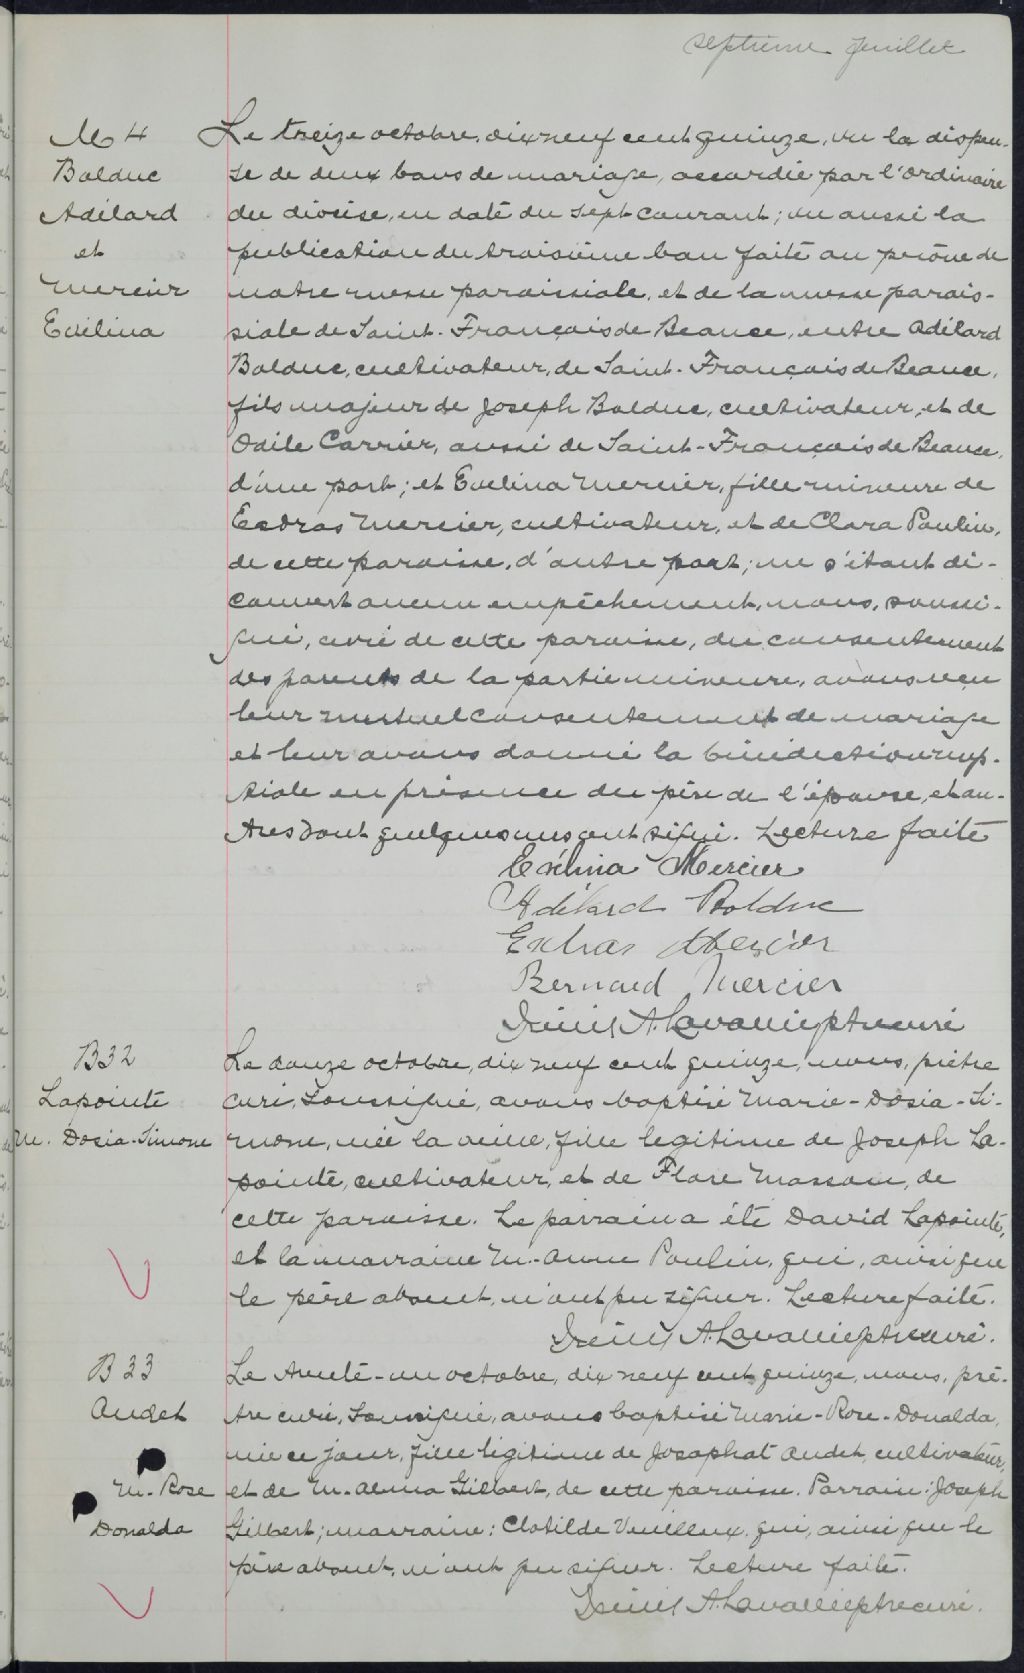 septième feuillet
M 4
Bolduc
Adélard
et
Mercier
Evélina
Le treize octobre, dix neuf cent quinze, vu la dispen-
se de deux bans de mariage, accordée par l'ordinaire
du diocèse, en date du sept courant; vu aussi la
publication du troisième ban faite au prône de
notre messe paroissiale, et de la messe parois-
siale de Saint-François de Beauce, entre Adélard
Bolduc, cultivateur, de Saint-François de Beauce,
fils majeur de Joseph Bolduc, cultivateur, et de
Odile Carrier, aussi de Saint-François de Beauce,
d'une part; et Evelina Mercier, fille mineure de
Esdras Mercier, cultivateur, et de Clara Poulin,
de cette paroisse, d'autre part; ne s'étant dé-
couvert aucun empêchement, nous, soussi-
gné, curé de cette paroisse, du consentement
des parents de la partie mineure, avons reçu
leur mutuel consentement de mariage
et leur avons donné la bénédiction nup-
tiale en présence du père de l'épouse, et au-
tres dont quelques uns ont signé. Lecture faite
Evélina Mercier
Adélard Bolduc
Esdras Mercier
Bernard Mercier
A. Lavallée ptre curé
B32
Lapointe
M. Dosia-Simone
Le douze octobre, dix neuf cent quinze, nous, prêtre
curé, soussigné, avons baptisé Marie-Dosia-Si-
mone, née la veille, fille légitime de Joseph La-
pointe, cultivateur, et de Flore Masson, de
cette paroisse. Le parrain a été David Lapointe,
et la marraine M.-Anne Poulin, qui, ainsi que
le père absent, n'ont pu signer. Lecture faite.
A. Lavallée ptre curé.
B33
Audet
M. Rose
Donalda
Le trente-un octobre, dix neuf cent quinze, nous, prê-
tre curé, soussigné, avons baptisé Marie-Rose-Donalda,
née ce jour, fille légitime de Josaphat Audet, cultivateur,
et de M. Alma Gilbert, de cette paroisse. Parrain: Joseph
Gilbert; marraine: Clotilde Veilleux, qui, ainsi que le
père absent, n'ont pu signer. Lecture faite.
A. Lavallée ptre curé.